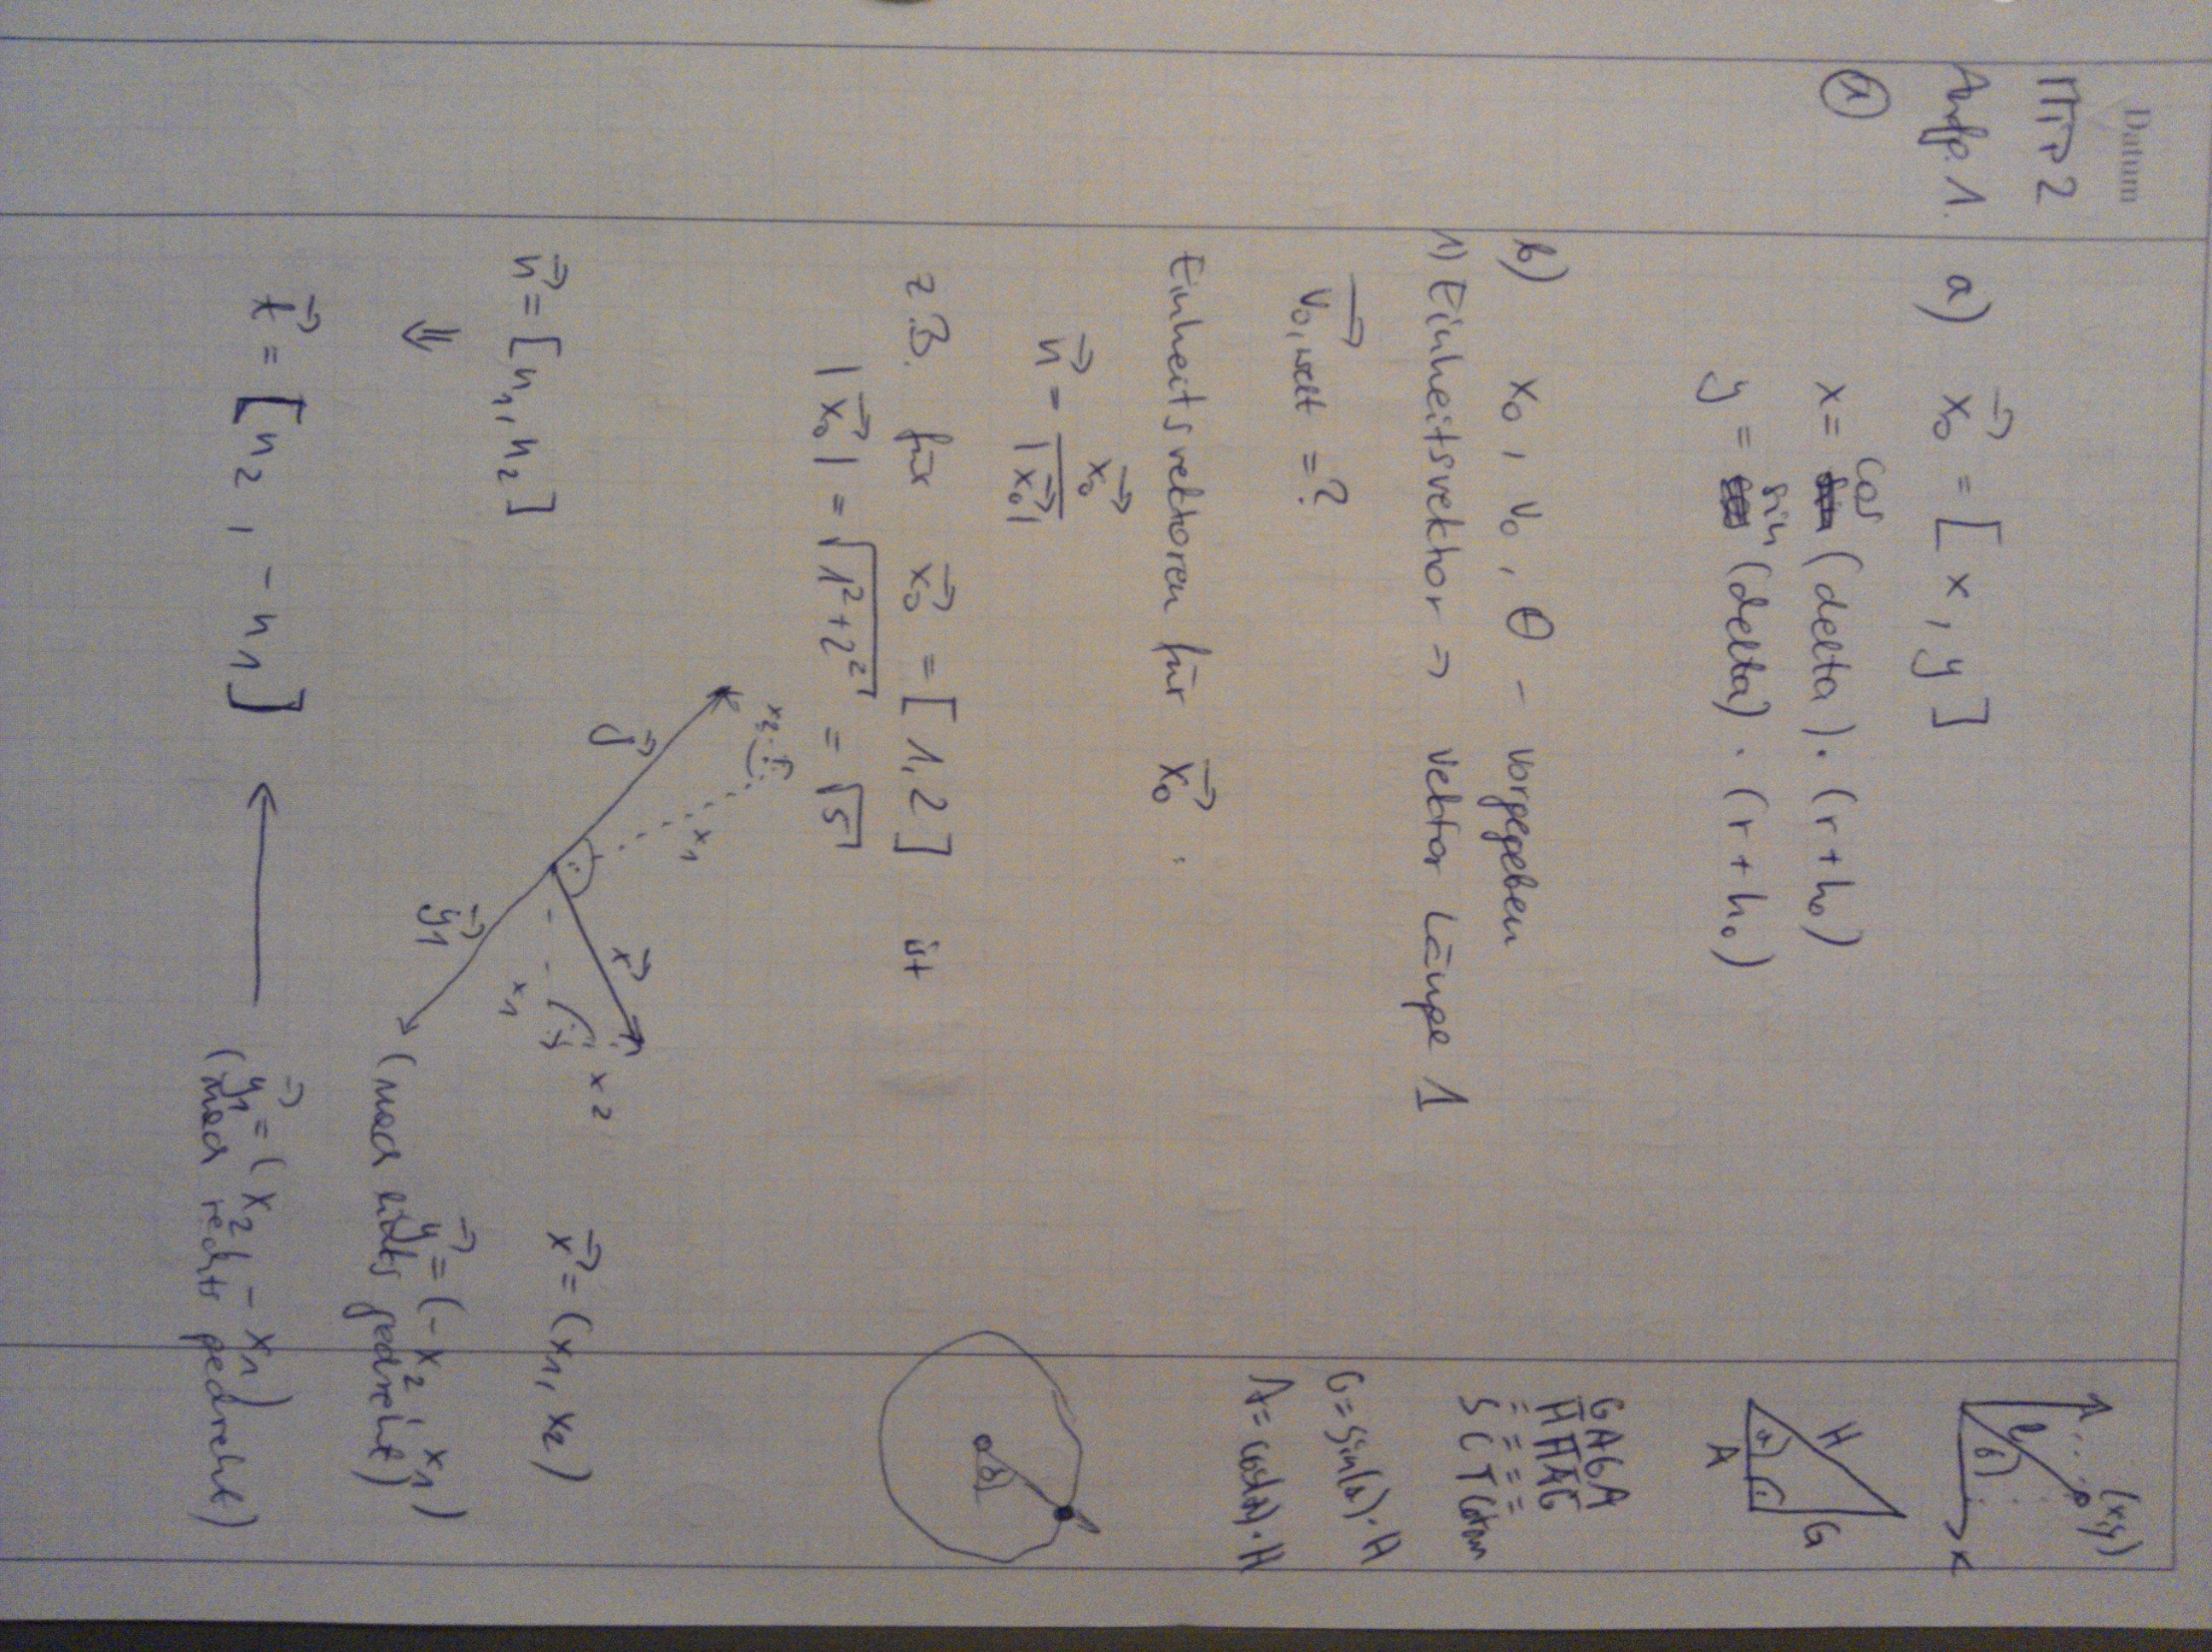 Datum
MTP 2
Aufg. 1.
①
a) x₀ = [x, y]
x = cos (delta) · (r + h₀)
y = sin (delta) · (r + h₀)
b) x₀, v₀, θ - vorgegeben
1) Einheitsvektor → Vektor Länge 1
v₀,welt = ?
Einheitsvektoren für x₀ :
n = x₀ / |x₀|
z.B. für x₀ = [1,2] ist
|x₀| = √1²+2² = √5
n = [n₁, n₂]
⇓
t = [n₂, -n₁]
x₂
x₁
y
x
x₂
x₁
y₁
x = (x₁, x₂)
y = (-x₂, x₁)
(nach links gedreht)
y₁ = (x₂ - x₁)
(nach rechts gedreht)
(x,y)
x
H
G
A
α
GAGA
HHAG
S C T Cotan
G = sin(α) · H
A = cos(α) · H
δ